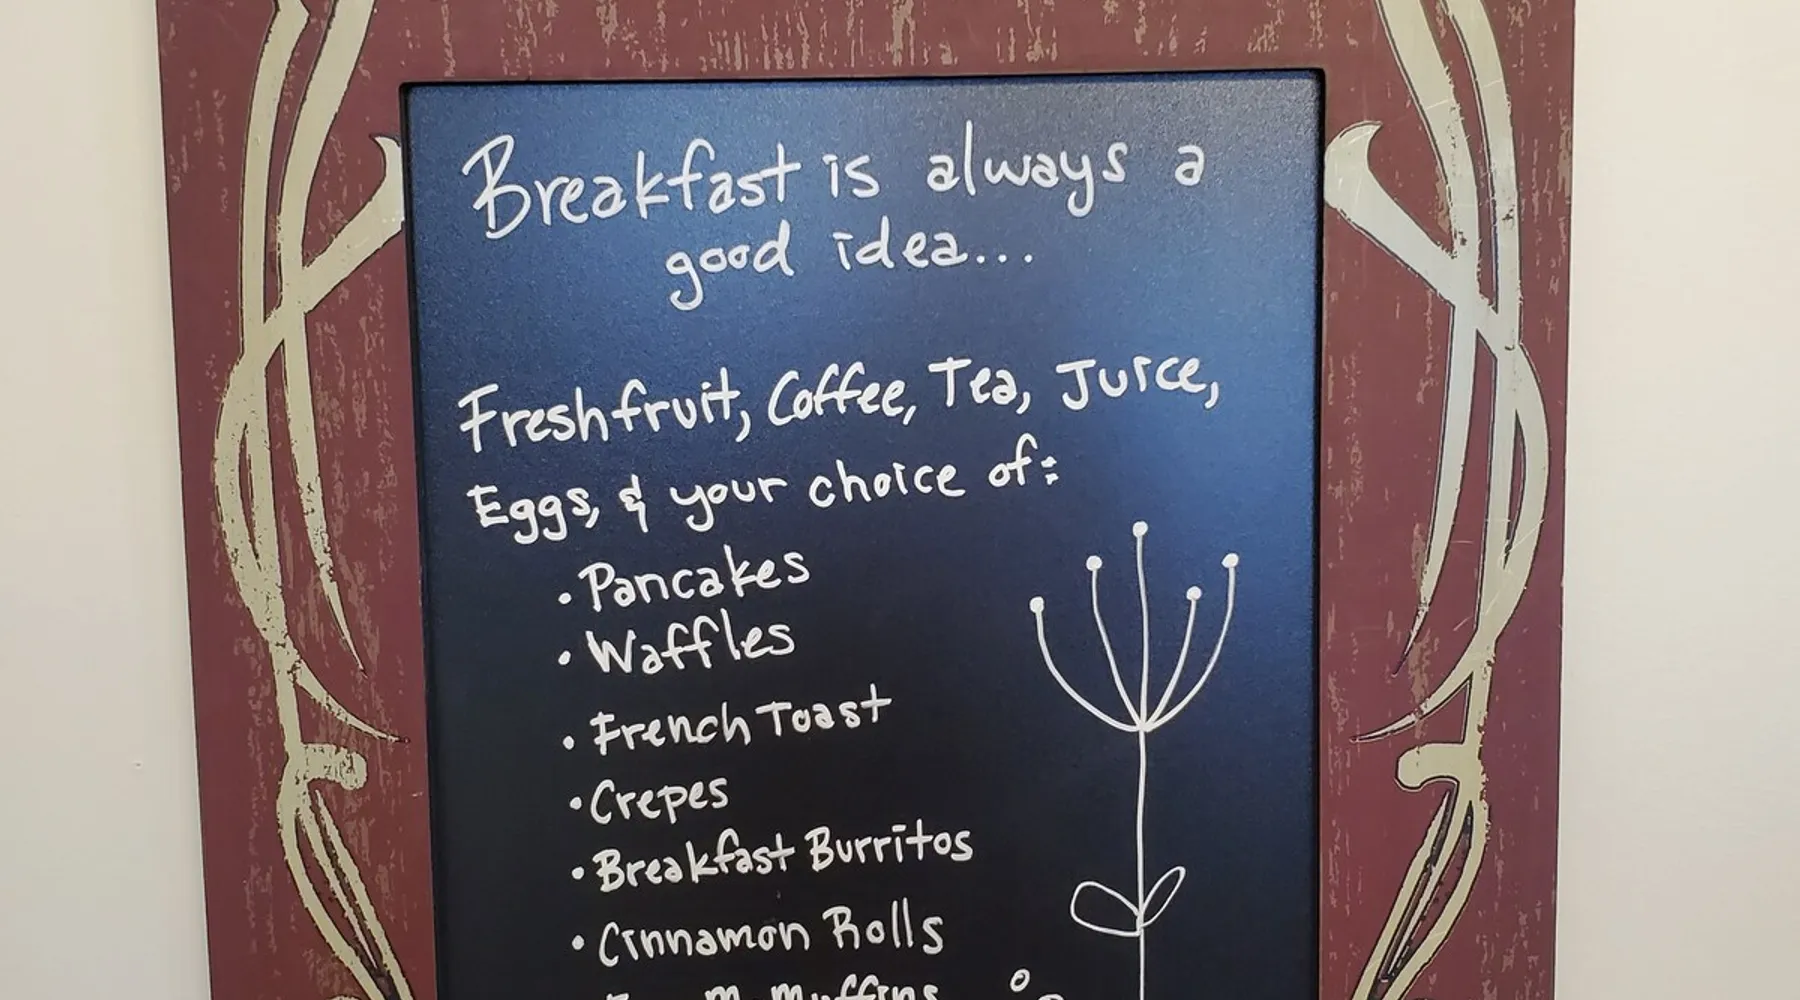 Breakfast is always a
good idea...
Fresh fruit, Coffee, Tea, Juice,
Eggs, & your choice of:
• Pancakes
• Waffles
• French Toast
• Crepes
• Breakfast Burritos
• Cinnamon Rolls
muffins